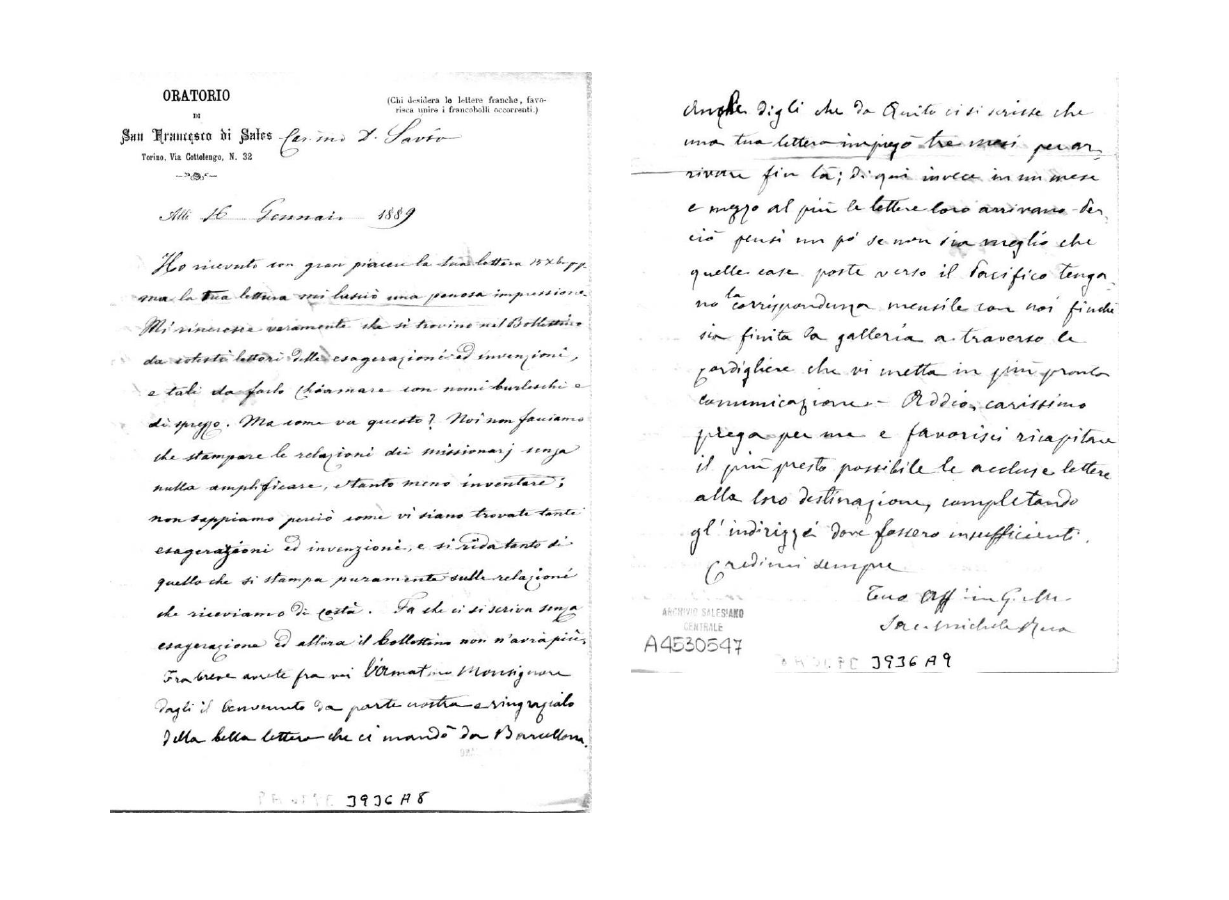 ORATORIO
DI
San Francesco di Sales
Torino, Via Cottolengo, N. 32
(Chi desidera le lettere franche, favo-
risca unire i francobolli occorrenti.)
D. Savio
Alli 16 Gennaio 1889
Ho ricevuto con gran piacere la tua lettera
ma la tua lettura mi lasciò una penosa impressione.
Mi rincresce veramente che si trovino nel Bollettino
da cotesti lettori delle esagerazioni ed invenzioni,
e tali da farlo chiamare con nomi burleschi e
di sprezzo. Ma come va questo? Noi non facciamo
che stampare le relazioni dei missionarj senza
nulla amplificare, e tanto meno inventare;
non sappiamo perciò come vi siano trovate tante
esagerazioni ed invenzioni, e si rida tanto di
quello che si stampa puramente sulle relazioni
che riceviamo di costà. Fa che ci si scriva senza
esagerazione ed allora il Bollettino non n'avrà più.
Fra breve avrete fra voi l'Amatmo Monsignore
dagli il benvenuto da parte nostra e ringrazialo
della bella lettera che ci mandò da Barcellona.
3936 A8
Anche digli che da Quito ci si scrisse che
una tua lettera impiegò tre mesi per ar-
rivare fin là; di qui invece in un mese
e mezzo al più le lettere loro arrivano. Per
ciò pensi un pò se non sia meglio che
quelle case poste verso il Pacifico tenga-
no la corrispondenza mensile con noi finchè
sia finita la galleria a traverso le
cordigliere che vi metta in più pronta
comunicazione. - Addio, carissimo
prega per me e favorisci ricapitare
il più presto possibile le accluse lettere
alla loro destinazione, completando
gl'indirizzi dove fossero insufficienti.
Credimi sempre
Tuo Aff. in G. e M.
Sac. Michele Rua
ARCHIVIO SALESIANO
CENTRALE
A4530547
3936 A9